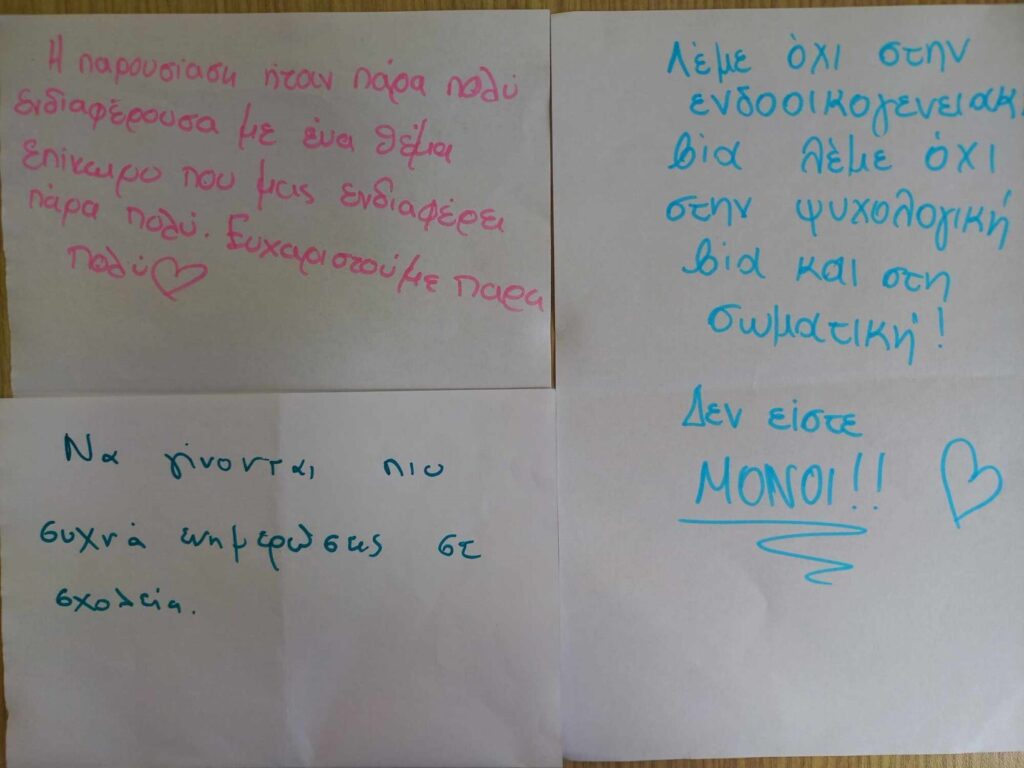 Η παρουσίαση ήταν πάρα πολύ
ενδιαφέρουσα με ένα θέμα
επίκαιρο που μας ενδιαφέρει
πάρα πολύ. Ευχαριστούμε παρα
πολύ
Να γίνονται πιο
συχνά ενημερώσεις σε
σχολεία.
Λέμε όχι στην
ενδοοικογενειακ
βία λέμε όχι
στην ψυχολογική
βία και στη
σωματική!
Δεν είστε
ΜΟΝΟΙ!!